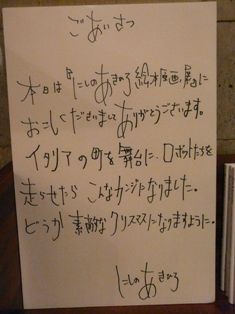 ごあいさつ
本日は『にしのあきひろ絵本原画展』に
おこしくださいましてありがとうございます。
イタリアの町を舞台に、ロボットたちを
走らせたら こんなカンジになりました。
どうか 素敵なクリスマスになりますように。
にしの あきひろ